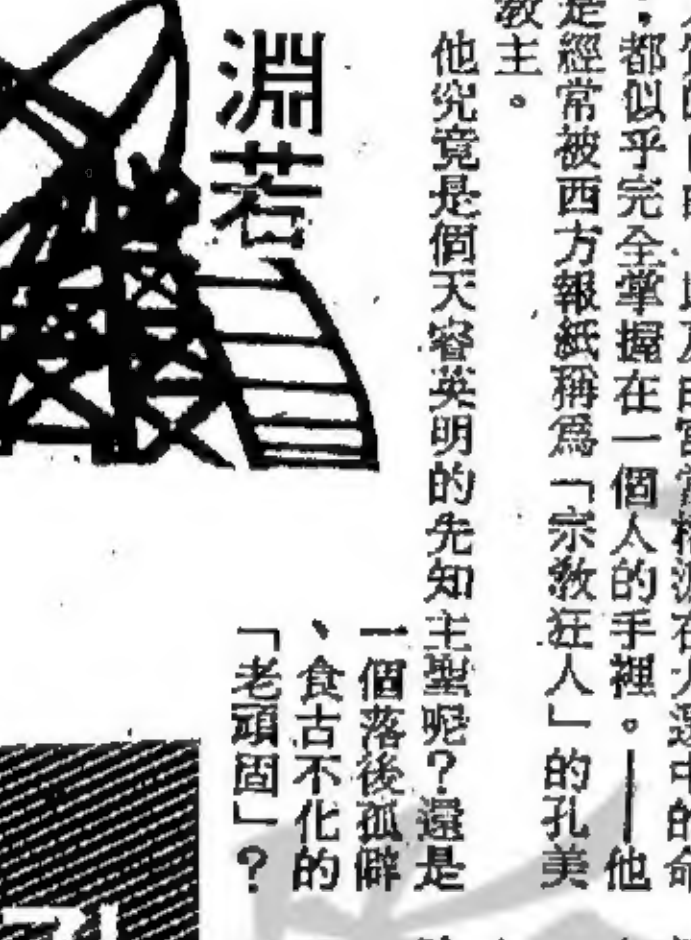 以及白宮當權派在大選中的命
，都似乎完全掌握在一個人的手裡。——他
是經常被西方報紙稱爲「宗敎狂人」的孔美
敎主。
他究竟是個天睿英明的先知主聖呢？還是
一個落後孤僻
、食古不化的
「老頑固」？
淵若